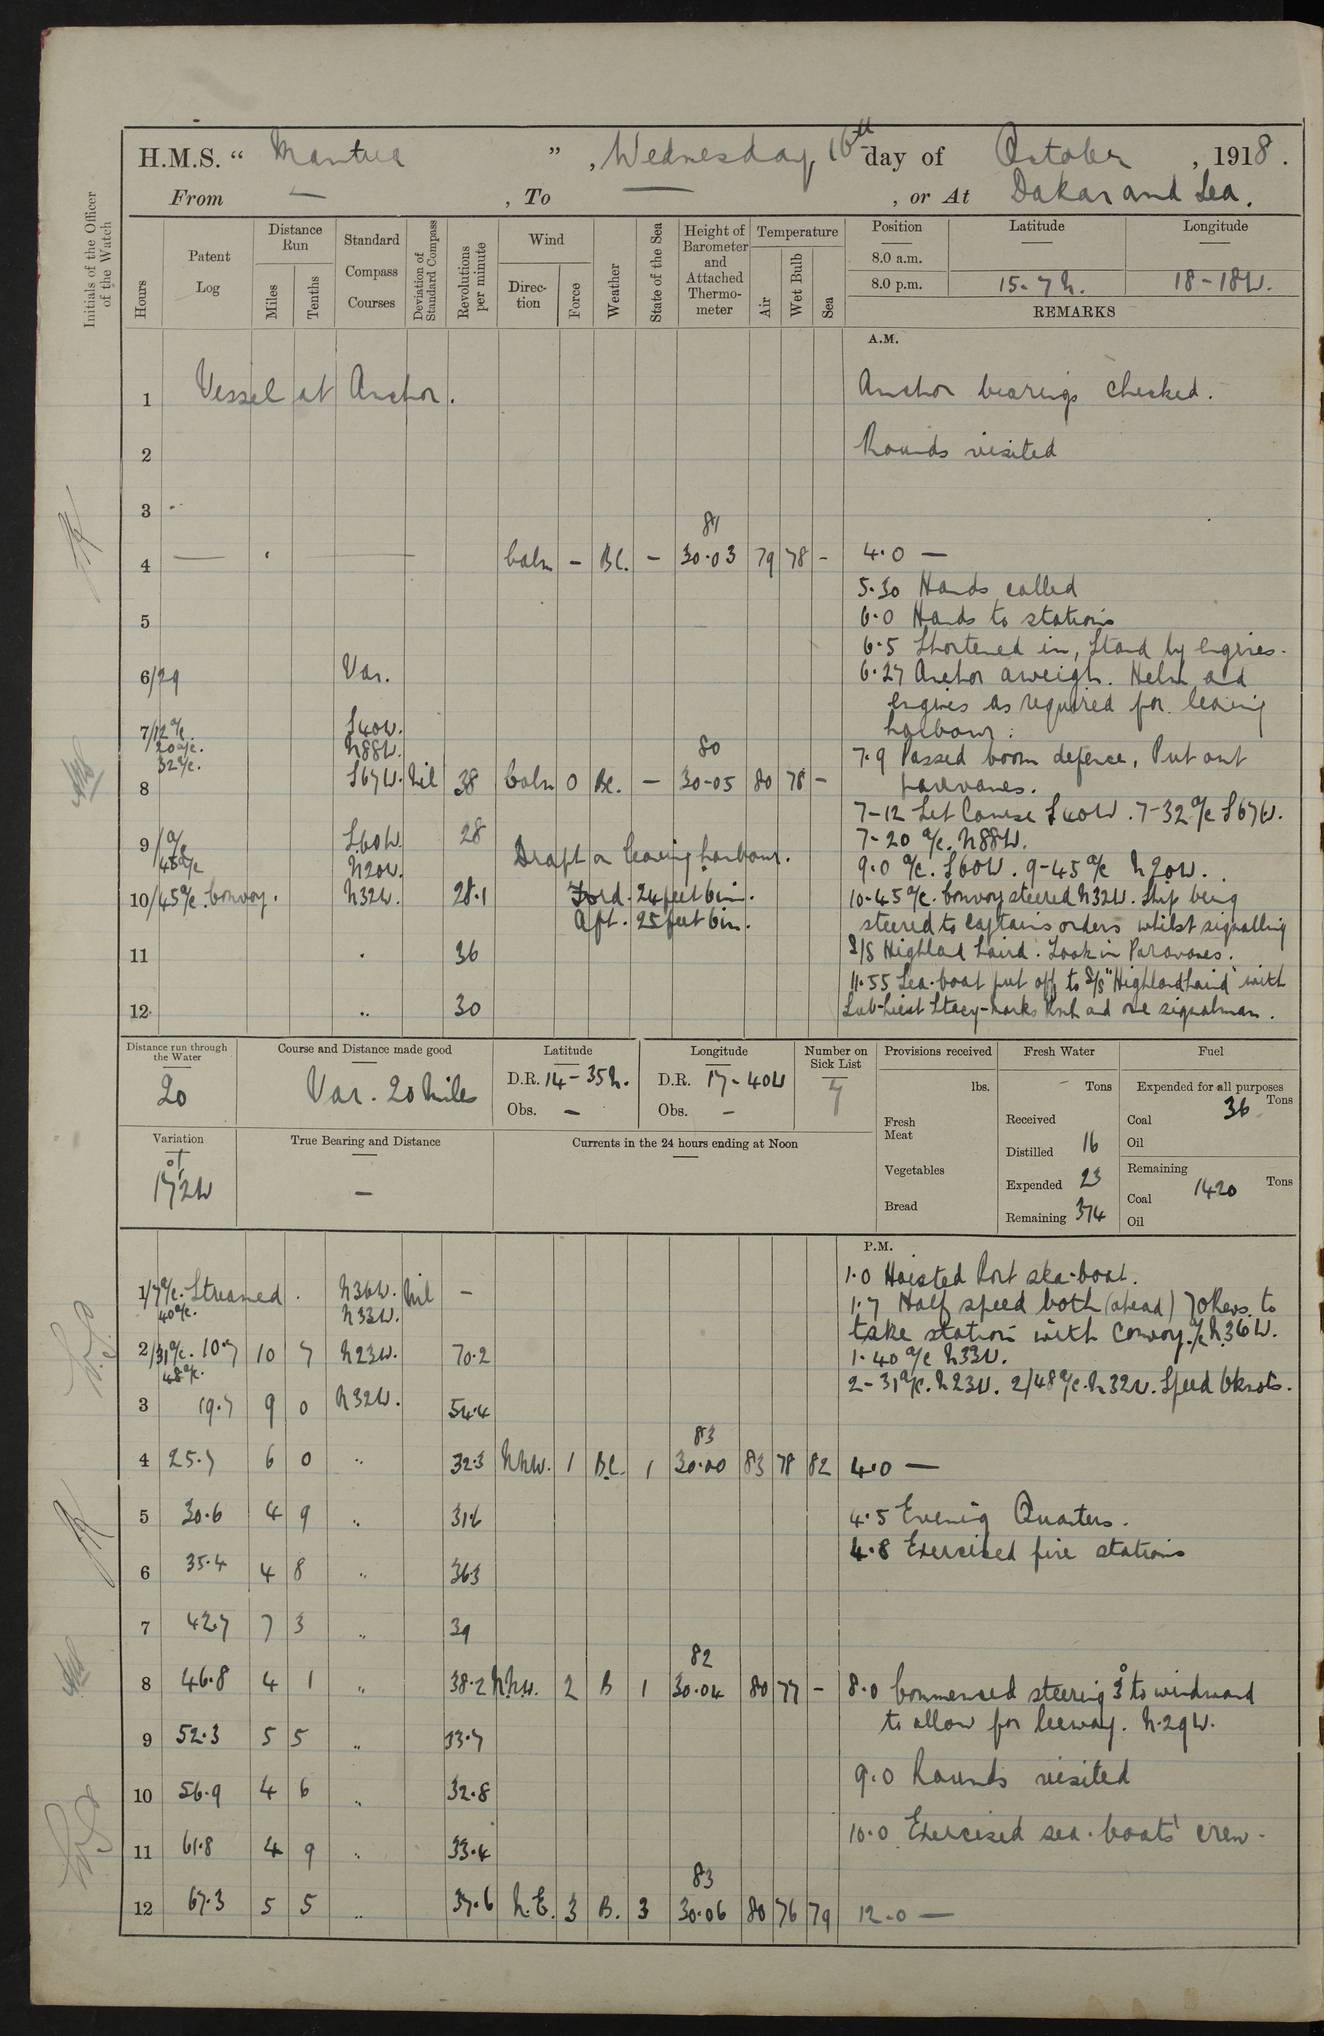 H.M.S. “ Mantua ” , Wednesday 16th day of October , 1918 .
From — , To — , or At Dakar and Sea.
Initials of the Officer of the Watch
Hours
Patent Log
Distance Run
Miles
Tenths
Standard Compass Courses
Deviation of Standard Compass
Revolutions per minute
Wind
Direction
Force
Weather
State of the Sea
Height of Barometer and Attached Thermometer
Temperature
Air
Wet Bulb
Sea
Position Latitude Longitude
8.0 a.m.
8.0 p.m. 15-7N. 18-18W.
REMARKS
A.M.
1 Vessel at Anchor. Anchor bearings checked.
2 Rounds visited
3
81
4 — Calm - BC. - 30.03 79 78 - 4.0 —
5.30 Hands called
5 6.0 Hands to stations
6.5 Shortened in, Stand by engines.
6/29 Var. 6.27 Anchor aweigh. Helm and
engines as required for leaving
harbour.
7/12 a/c. S40W.
20 a/c. N88W. 80 7.9 Passed boom defence, Put out
32 a/c.
8 S67W. Nil 38 Calm 0 BC. - 30.05 80 78 - paravanes.
7-12 Set Course S40W. 7-32 a/c S67W.
9/ a/c S60W. 28 7-20 a/c. N88W.
45 a/c N20W. Draft on leaving harbour. 9.0 a/c. S60W. 9-45 a/c N20W.
10/45 a/c. Convoy. N32W. 28.1 Ford. 24 feet 6 in. 10.45 a/c. Convoy steered N32W. Ship being
Aft. 25 feet 6 in. steered to Captains orders whilst signalling
11 " 36 S/S Highland Laird. Took in Paravanes.
11.55 Sea-boat put off to S/S "Highland Laird" with
12 " 30 Sub-Lieut Stacy-Marks RNR and one signalman.
Distance run through the Water
20
Course and Distance made good
Var. 20 Miles
Latitude
D.R. 14-35N.
Obs. —
Longitude
D.R. 17-40W
Obs. —
Number on Sick List
7
Provisions received
lbs.
Fresh Meat
Vegetables
Bread
Fresh Water
Tons
Received
Distilled 16
Expended 23
Remaining 374
Fuel
Expended for all purposes
Tons
Coal 36
Oil
Remaining
Tons
Coal 1420
Oil
Variation
17½W
True Bearing and Distance
—
Currents in the 24 hours ending at Noon
P.M.
1.0 Hoisted Port sea-boat.
1/7 a/c. Streamed. N36W. Nil - 1.7 Half speed both (ahead) 70 Revs. to
40 a/c. N33W. take station with Convoy. a/c N36W.
2/31 a/c. 10.7 10 7 N23W. 70.2 1.40 a/c N33W.
48 a/c. 2-31 a/c. N23W. 2/48 a/c. N32W. Speed 6 knots.
3 19.7 9 0 N32W. 54.4
83
4 25.7 6 0 " 32.3 NNW. 1 BC. 1 30.00 83 78 82 4.0 —
5 30.6 4 9 " 31.6 4.5 Evening Quarters.
4.8 Exercised fire stations
6 35.4 4 8 " 36.3
7 42.7 7 3 " 39
82
8 46.8 4 1 " 38.2 NNW. 2 B 1 30.04 80 77 - 8.0 Commenced steering 3° to windward
to allow for leeway. N.29W.
9 52.3 5 5 " 33.7
9.0 Rounds visited
10 56.9 4 6 " 32.8
10.0 Exercised sea-boats' crew.
11 61.8 4 9 " 33.4
83
12 67.3 5 5 " 37.6 N.E. 3 B. 3 30.06 80 76 79 12.0 —